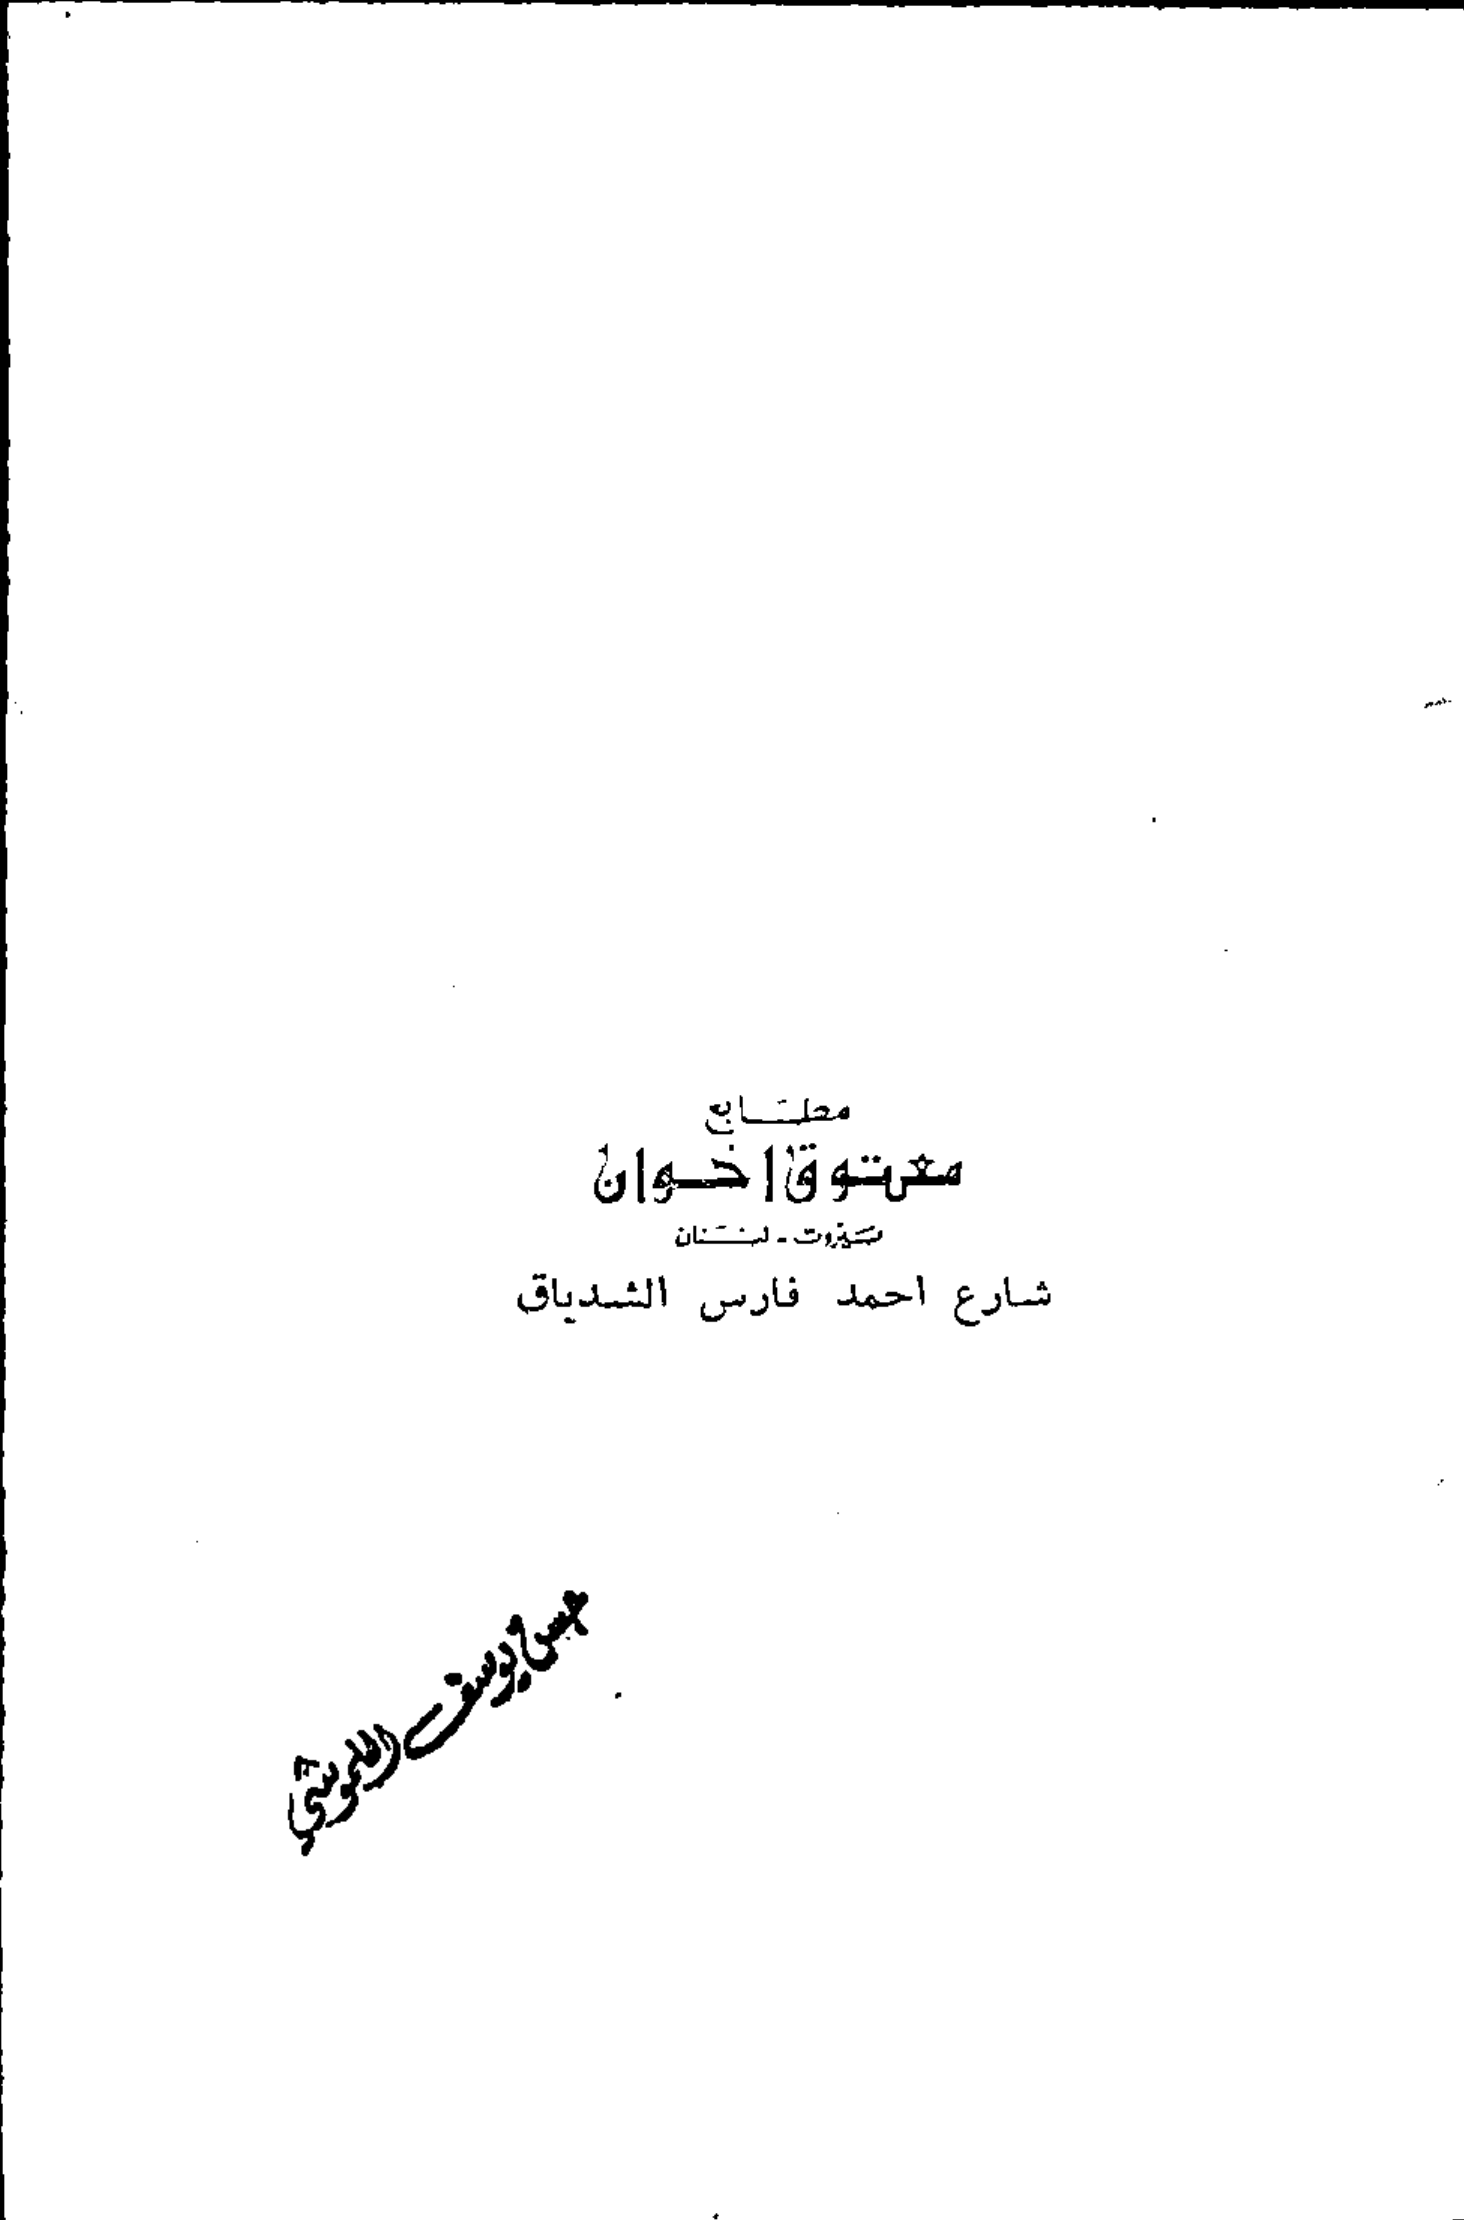 مطابع
معتوق اخوان
بيروت - لبنان
شارع احمد فارس الشدياق
يوسف